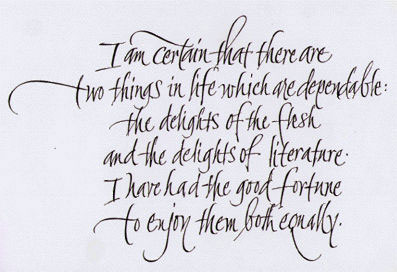 I am certain that there are
two things in life which are dependable:
the delights of the flesh
and the delights of literature.
I have had the good fortune
to enjoy them both equally.